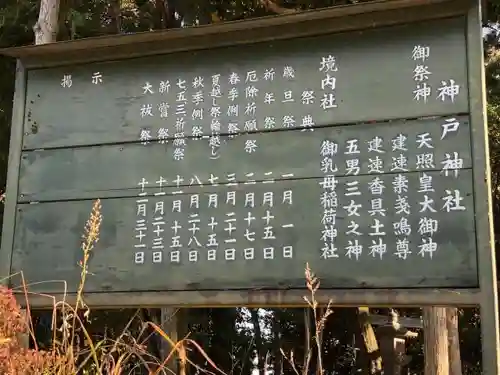 神戸神社
御祭神
天照皇大御神
建速素戔鳴尊
建速香具土神
五男三女之神
境内社
御乳母稲荷神社
祭典
歳旦祭 一月一日
祈年祭 二月十五日
厄除祈願 二月十七日
春季例祭 三月二十一日
夏越し祭(輪越し) 七月十五日
秋季例祭 八月二十八日
七五三祈願祭 十月十五日
新嘗祭 十一月二十三日
大祓祭 十二月三十一日
掲示